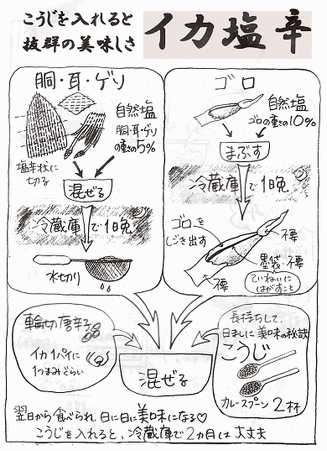 こうじを入れると
抜群の美味しさ
イカ塩辛
胴・耳・ゲソ
自然塩
胴・耳・ゲソ
の重さの5%
塩辛状に
切る
混ぜる
冷蔵庫で1晩
水切り
ゴロ
自然塩
ゴロの重さの10%
まぶす
冷蔵庫で1晩
ゴロを
しごき出す
不要
墨袋、不要
ていねいに
はがすこと
不要
輪切唐辛子
イカ1パイに
1つまみぐらい
混ぜる
長持ちして、
日ましに美味の秘訣
こうじ
カレースプーン2杯
翌日から食べられ、日に日に美味になる♡
こうじを入れると、冷蔵庫で2カ月は大丈夫